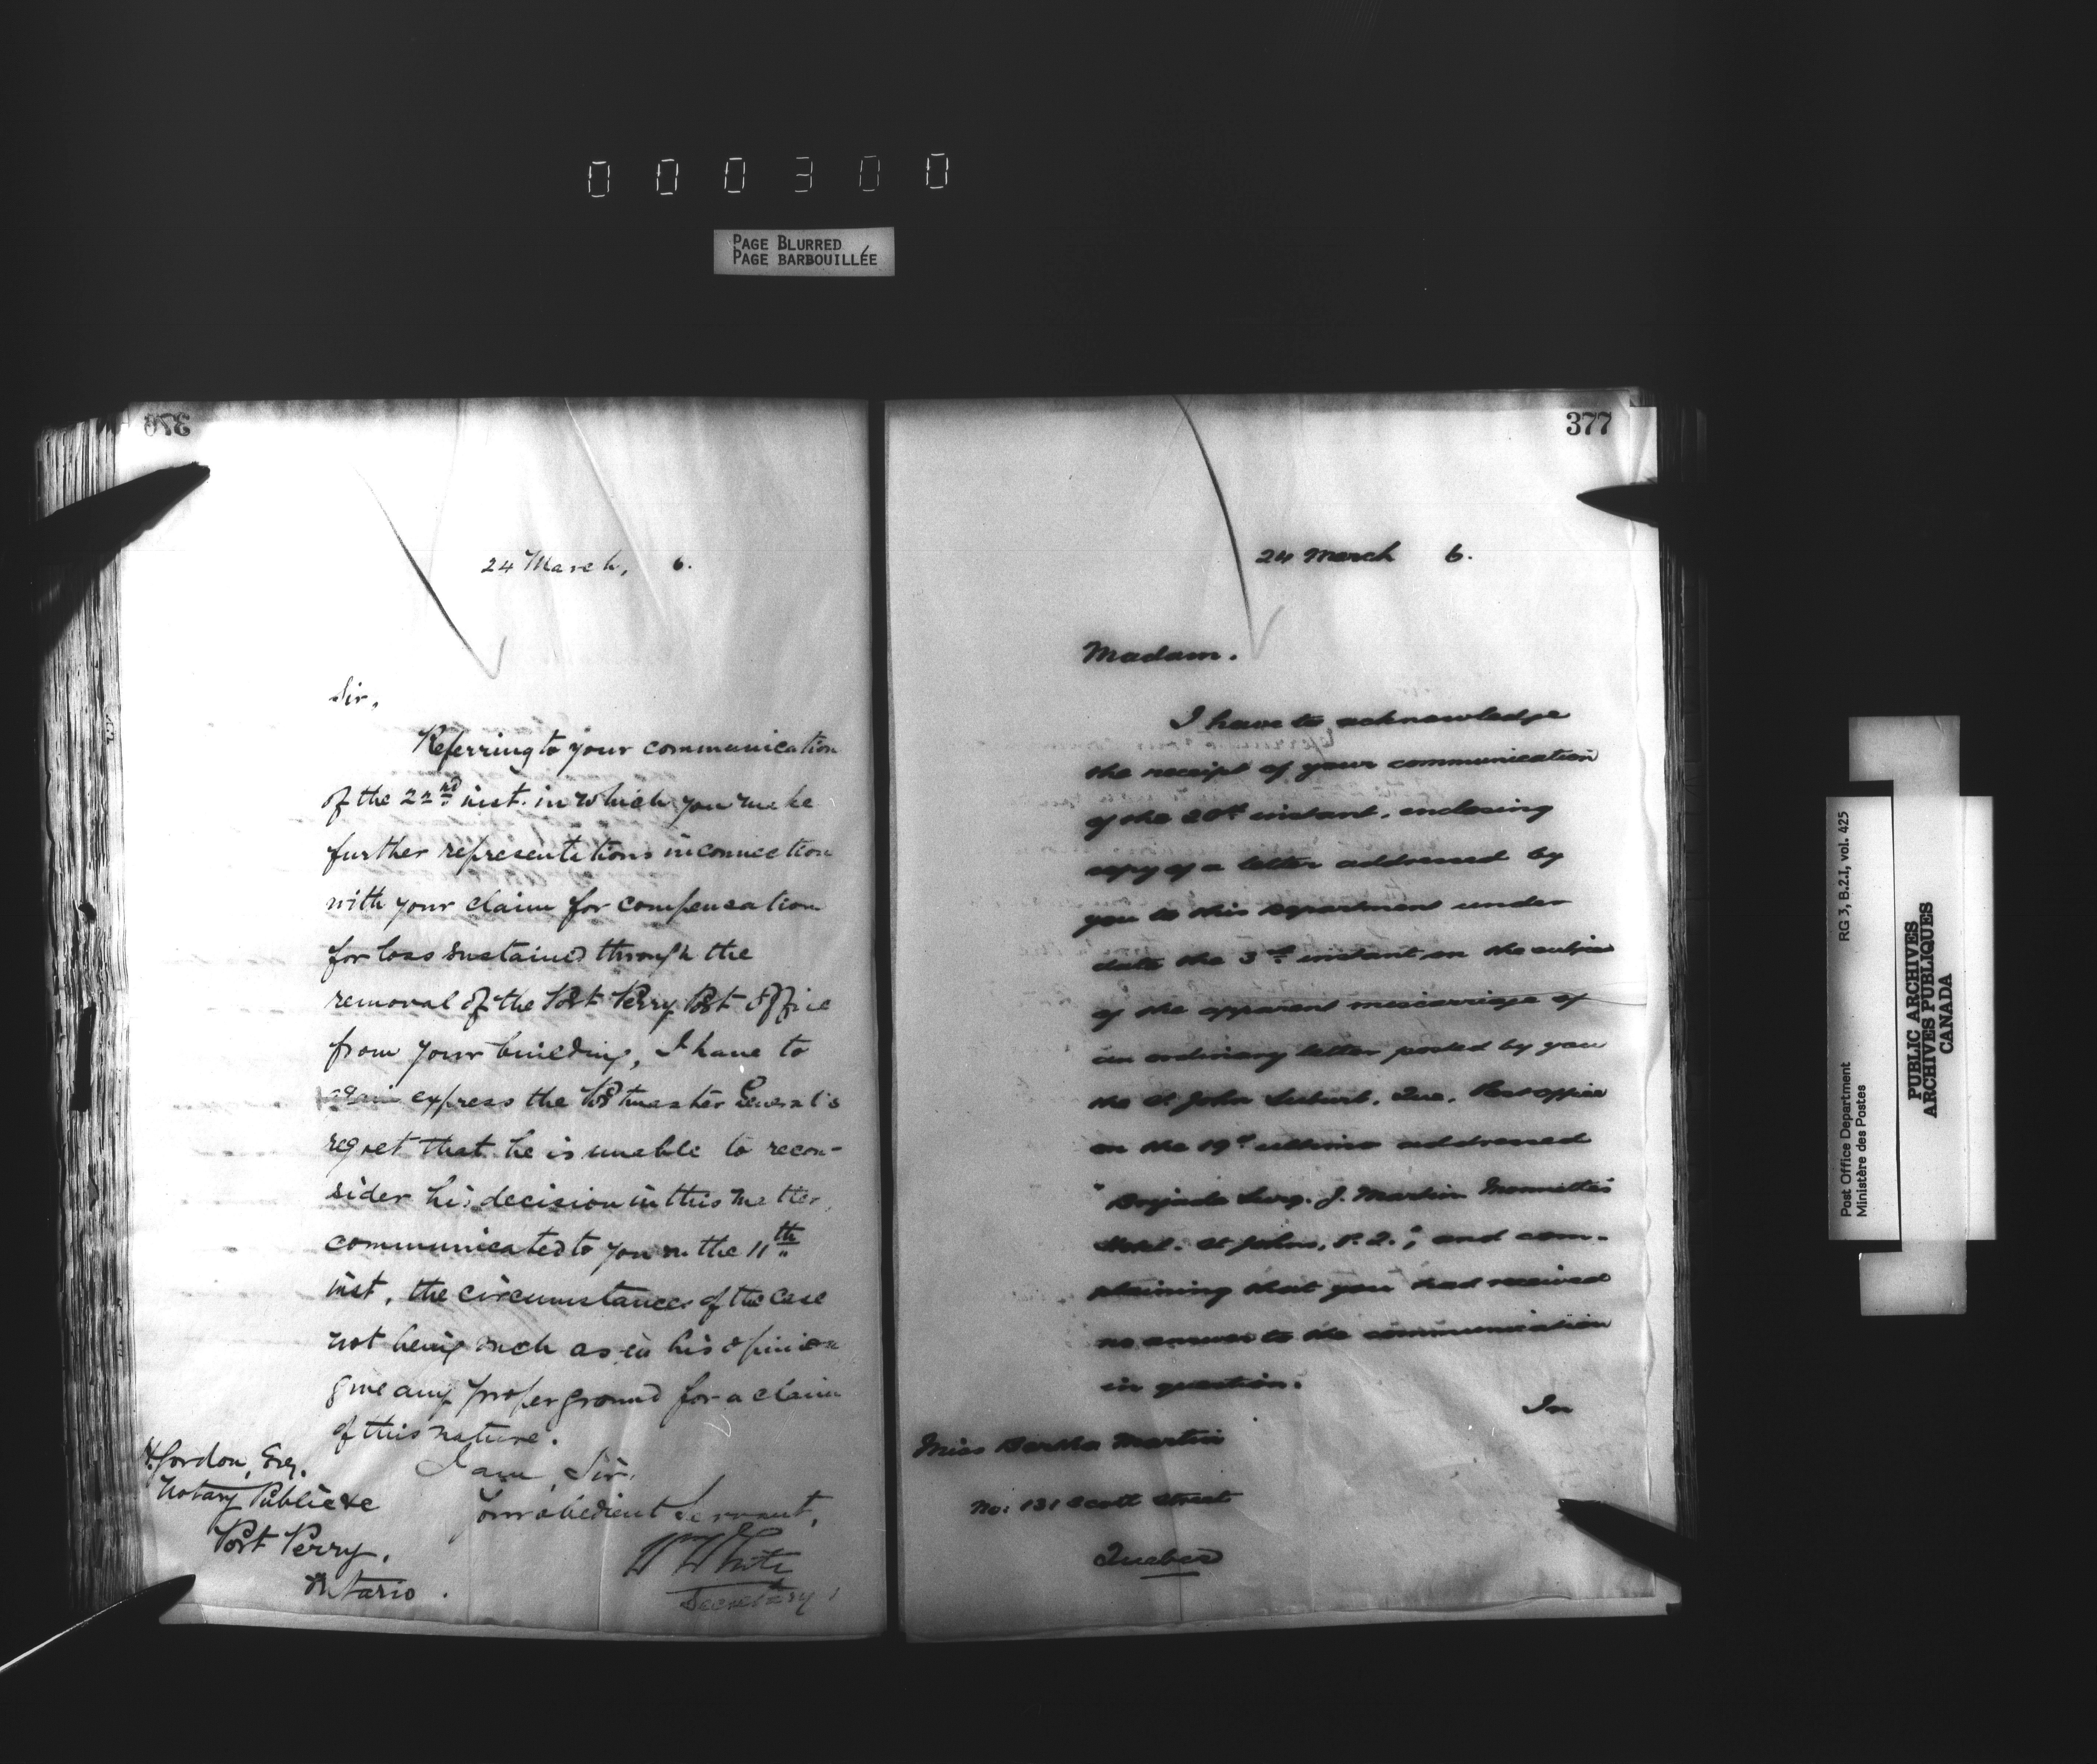 000300
PAGE BLURRED
PAGE BARBOUILLÉE
376
24 March, 6.
Sir,
Referring to your communication
of the 22nd inst. in which you make
further representations in connection
with your claim for compensation
for loss sustained through the
removal of the Port Perry Post Office
from your building, I have to
again express the Postmaster General's
regret that he is unable to recon-
sider his decision in this matter,
communicated to you on the 11th
inst, the circumstances of the case
not being such as in his opinion
give any proper ground for a claim
of this nature.
I am, Sir,
Your obedient Servant,
Wm White
Secretary
H. Gordon, Esq.
Notary Public &c
Port Perry,
Ontario.
377
24 March 6.
Madam.
I have to acknowledge
the receipt of your communication
of the 20th instant, enclosing
copy of a letter addressed by
you to this Department under
date the 3rd instant on the subject
of the apparent miscarriage of
an ordinary letter posted by you
the St. John Suburb, Que, Post Office
on the 19th ultimo addressed
"Brigade Surg. J. Martin
Hotel. St Johns, P.Q."; and com-
plaining that you had received
no answer to the communication
in question.
In
Miss Bertha Martin
No: 131 Scott Street
Quebec
Post Office Department RG 3, B.2.I, vol. 425
Ministère des Postes
PUBLIC ARCHIVES
ARCHIVES PUBLIQUES
CANADA